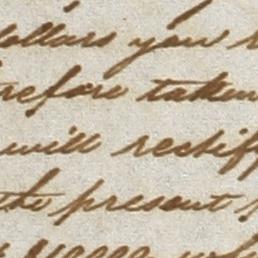 dollars your
refore taken
will rectif
the present